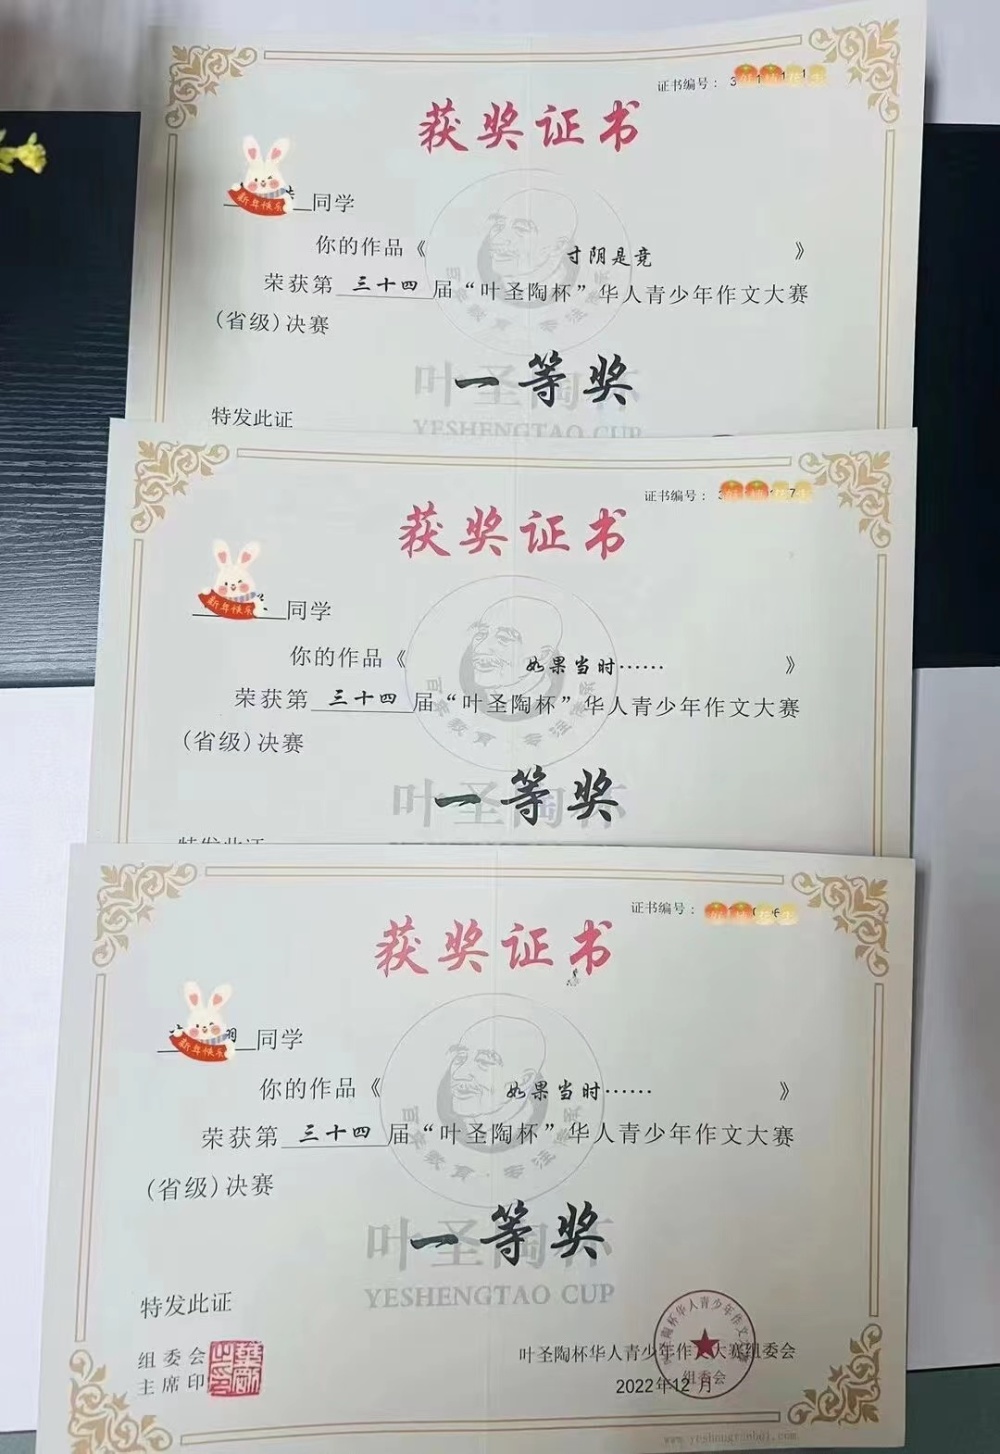 证书编号：
获奖证书
新年快乐
同学
你的作品《 寸阴是竞 》
荣获第 三十四 届“叶圣陶杯”华人青少年作文大赛
(省级)决赛
叶圣陶杯
一等奖
YESHENGTAO CUP
特发此证
证书编号：
获奖证书
新年快乐
同学
你的作品《 如果当时…… 》
荣获第 三十四 届“叶圣陶杯”华人青少年作文大赛
(省级)决赛
叶圣陶杯
一等奖
特发此证
证书编号：
获奖证书
新年快乐
同学
你的作品《 如果当时…… 》
荣获第 三十四 届“叶圣陶杯”华人青少年作文大赛
(省级)决赛
叶圣陶杯
一等奖
YESHENGTAO CUP
特发此证
组委会
主席印
叶圣陶杯华人青少年作文大赛组委会
组委会
2022年12月